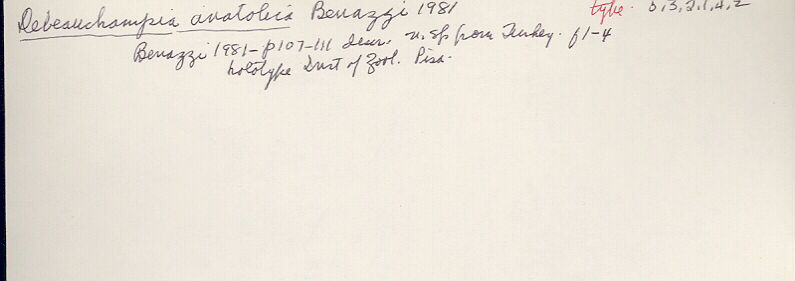 Debeauchampia anatolica Benazzi 1981 type. 5,3,2,1,4,2
Benazzi 1981 - p107-111 descr. n. sp from Turkey. f1-4
holotype Inst of Zool. Pisa.